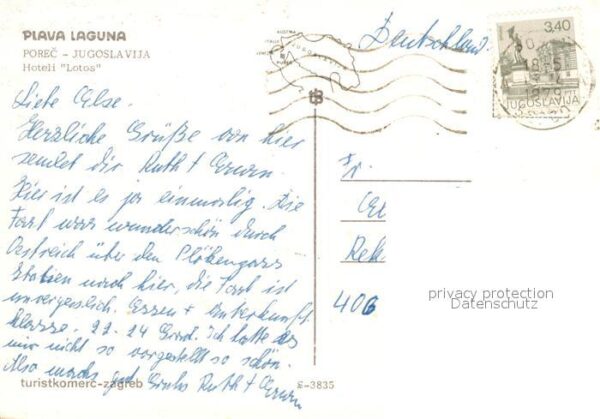 PLAVA LAGUNA
POREČ – JUGOSLAVIJA
Hoteli "Lotos"
Deutschland.
3,40
JUGOSLAVIJA
Liebe Else.
Herzliche Grüße von hier
sendet dir Ruth + Erwin.
Hier ist es ja einmalig. Die
Fart war wunderschön durch
Östreich über den Plökenpass
Italien nach hier, die Fart ist
unvergesslich. Essen + Unterkunft
klasse. 22-24 Grad. Ich hatte es
mir nicht so vorgestellt so schön.
Also machs gut Gruß Ruth + Erwin
Fr.
El
Rek
406
privacy protection
Datenschutz
turistkomerc-zagreb
£-3835